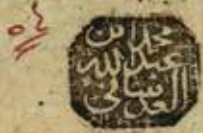 محمد بن
عبد الله
العدساني